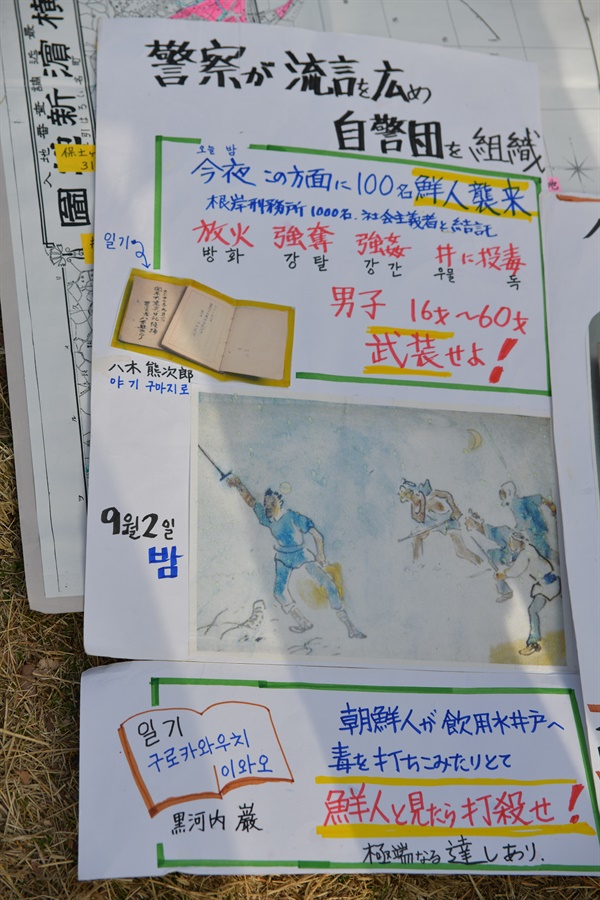 警察が流言を広め
自警団を組織
오늘 밤
今夜 この方面に100名鮮人襲来
根岸刑務所1000名、社会主義者と結託
放火 強奪 強姦 井に投毒
방화 강탈 강간 우물 독
일기
男子 16才〜60才
武装せよ!
八木 熊次郎
야기 구마지로
9월2일
밤
일기
구로카와우치
이와오
黒河内 巌
朝鮮人が飲用水井戸へ
毒を打ちこみたりとて
鮮人と見たら打殺せ!
極端なる達しあり.
保土
31